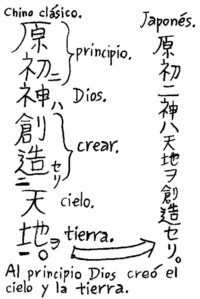 Chino clásico.
原初二神ハ創造セリ二天地ヲ一。
principio.
Dios.
crear.
cielo.
tierra.
Japonés.
原初二神ハ天地ヲ創造セリ。
Al principio Dios creó el
cielo y la tierra.